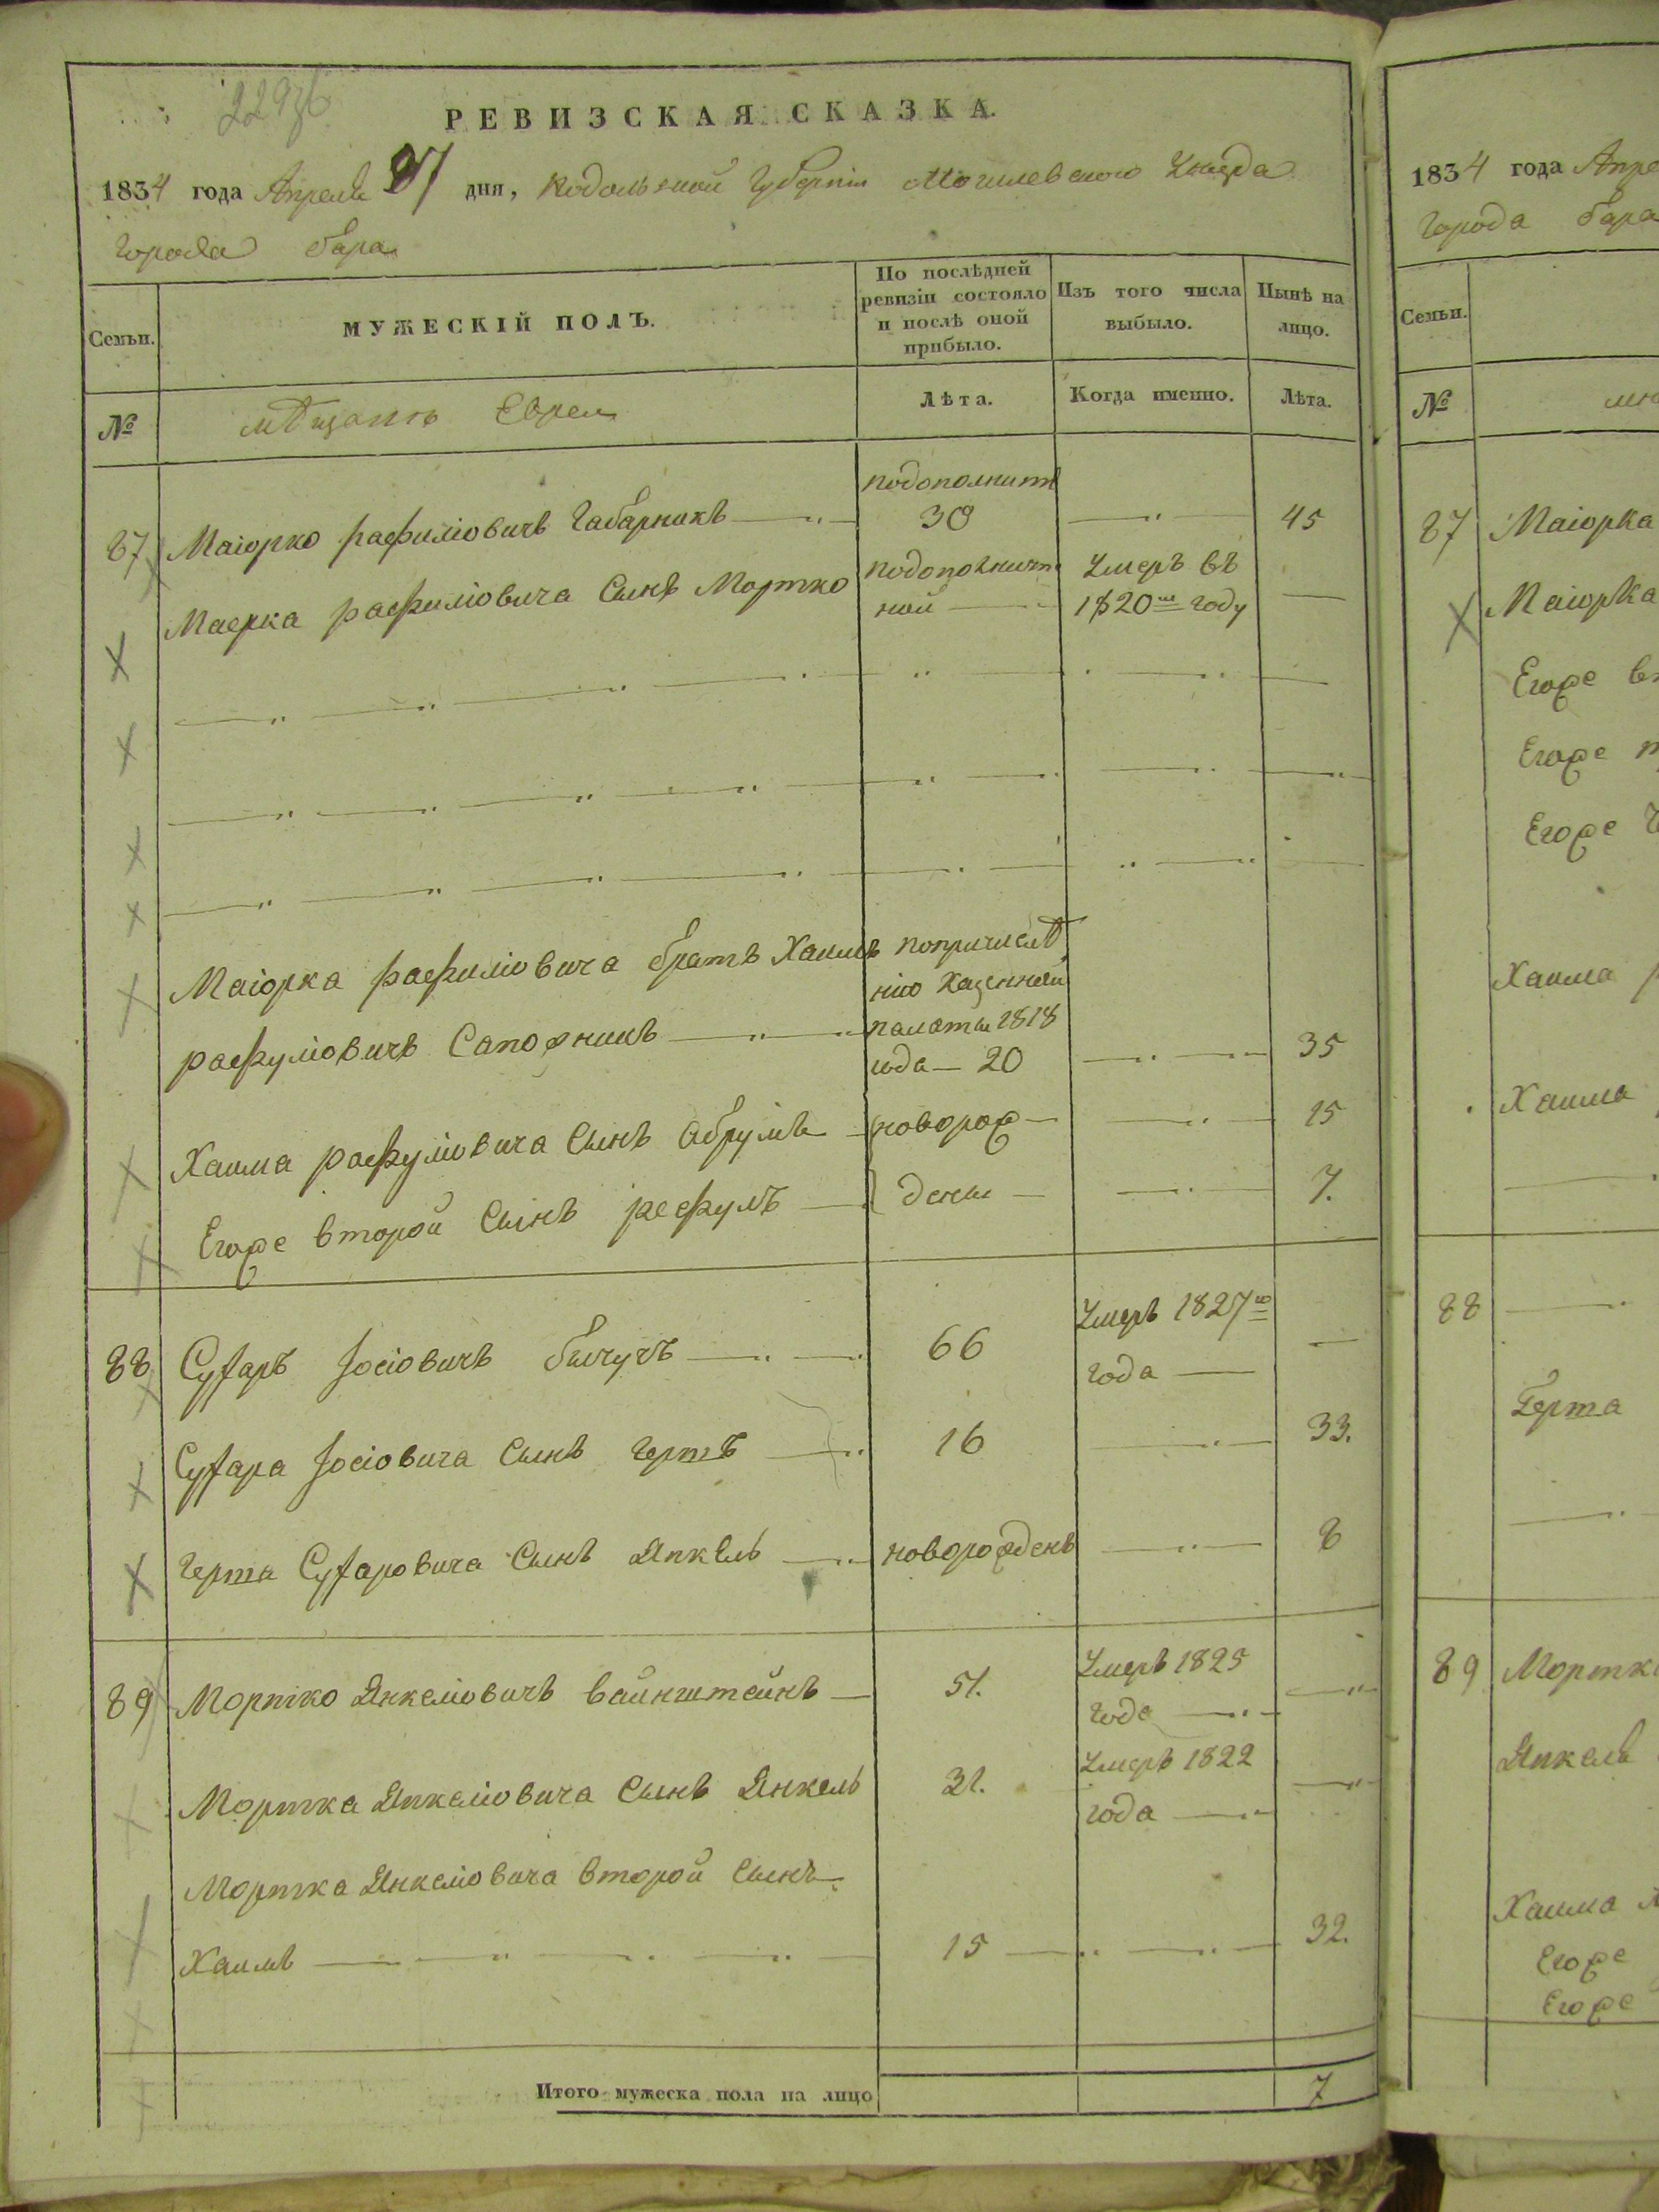 РЕВИЗСКАЯ СКАЗКА.
1834 года Апреля 27 дня, Подольской Губерніи Могилевского Уезда
города Бара
Семьи.
МУЖЕСКІЙ ПОЛЪ.
По послѣдней ревизіи состояло и послѣ оной прибыло.
Изъ того числа выбыло.
Нынѣ на лицо.
№
мѣщанъ Евреи
Лѣта.
Когда именно.
Лѣта.
87 Маіорко рафиліовичъ Габарникъ подополнит 30 45
Маерка рафиліовича Сынъ Мортко подополнит ной Умеръ въ 1820 году
Маіорка рафиліовича братъ Хаимъ попричислѣ
нію Казенной
рафуліовичъ Сапожникъ палаты 1818
года 20 35
Хаима рафуліовича Сынъ Абрумъ новорож 15
Егоже второй Сынъ рефулъ дены 7.
88 Суфаръ Іосіовичъ бичучъ 66 Умеръ 1827го
года
Суфара Іосіовича Сынъ Гертъ 16 33.
Герта Суфаровича Сынъ Янкель новорожденъ 8
89 Мортко Янкеліовичъ вайнштейнъ 51. Умеръ 1825
года
Мортка Янкеліовича Сынъ Янкель 21. Умеръ 1822
года
Мортка Янкеліовича второй Сынъ
Хаимъ 15 32.
Итого мужеска пола на лицо 7
1834 года Апре
города бара
Семьи.
№
87 Маіорка
Маіорка
Егоже
Егоже
Егоже
Хаима
Хаима
88
Герта
89 Мортк
Янкель
Хаима
Егоже
Егоже